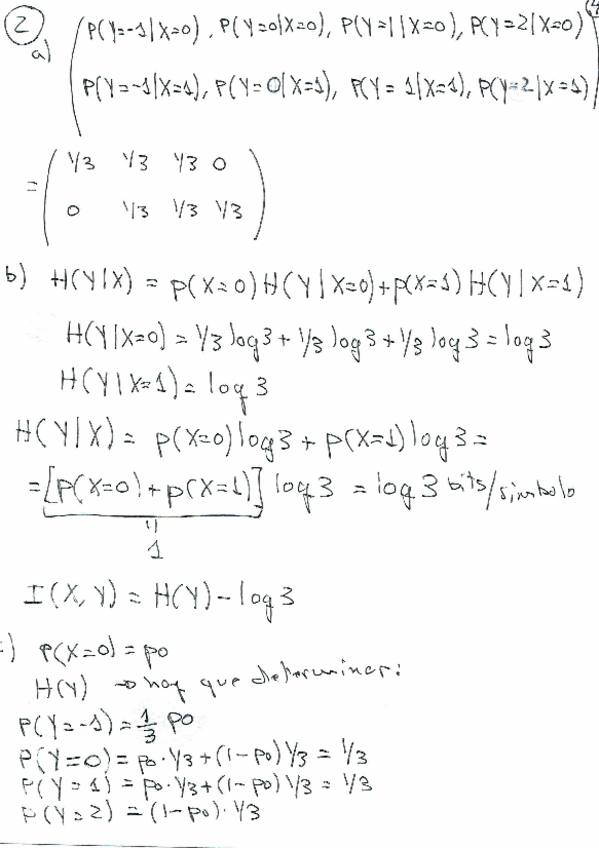 2
a) ( P(Y=-1|X=0), P(Y=0|X=0), P(Y=1|X=0), P(Y=2|X=0)
P(Y=-1|X=1), P(Y=0|X=1), P(Y=1|X=1), P(Y=2|X=1) )
= ( 1/3 1/3 1/3 0
0 1/3 1/3 1/3 )
b) H(Y|X) = p(X=0) H(Y|X=0) + p(X=1) H(Y|X=1)
H(Y|X=0) = 1/3 log3 + 1/3 log3 + 1/3 log3 = log3
H(Y|X=1) = log3
H(Y|X) = p(X=0) log3 + p(X=1) log3 =
= [p(X=0) + p(X=1)] log3 = log3 bits/simbolo
1
I(X,Y) = H(Y) - log3
) P(X=0) = p0
H(Y) → hay que determinar:
P(Y=-1) = 1/3 p0
P(Y=0) = p0·1/3 + (1-p0) 1/3 = 1/3
P(Y=1) = p0·1/3 + (1-p0) 1/3 = 1/3
P(Y=2) = (1-p0)·1/3